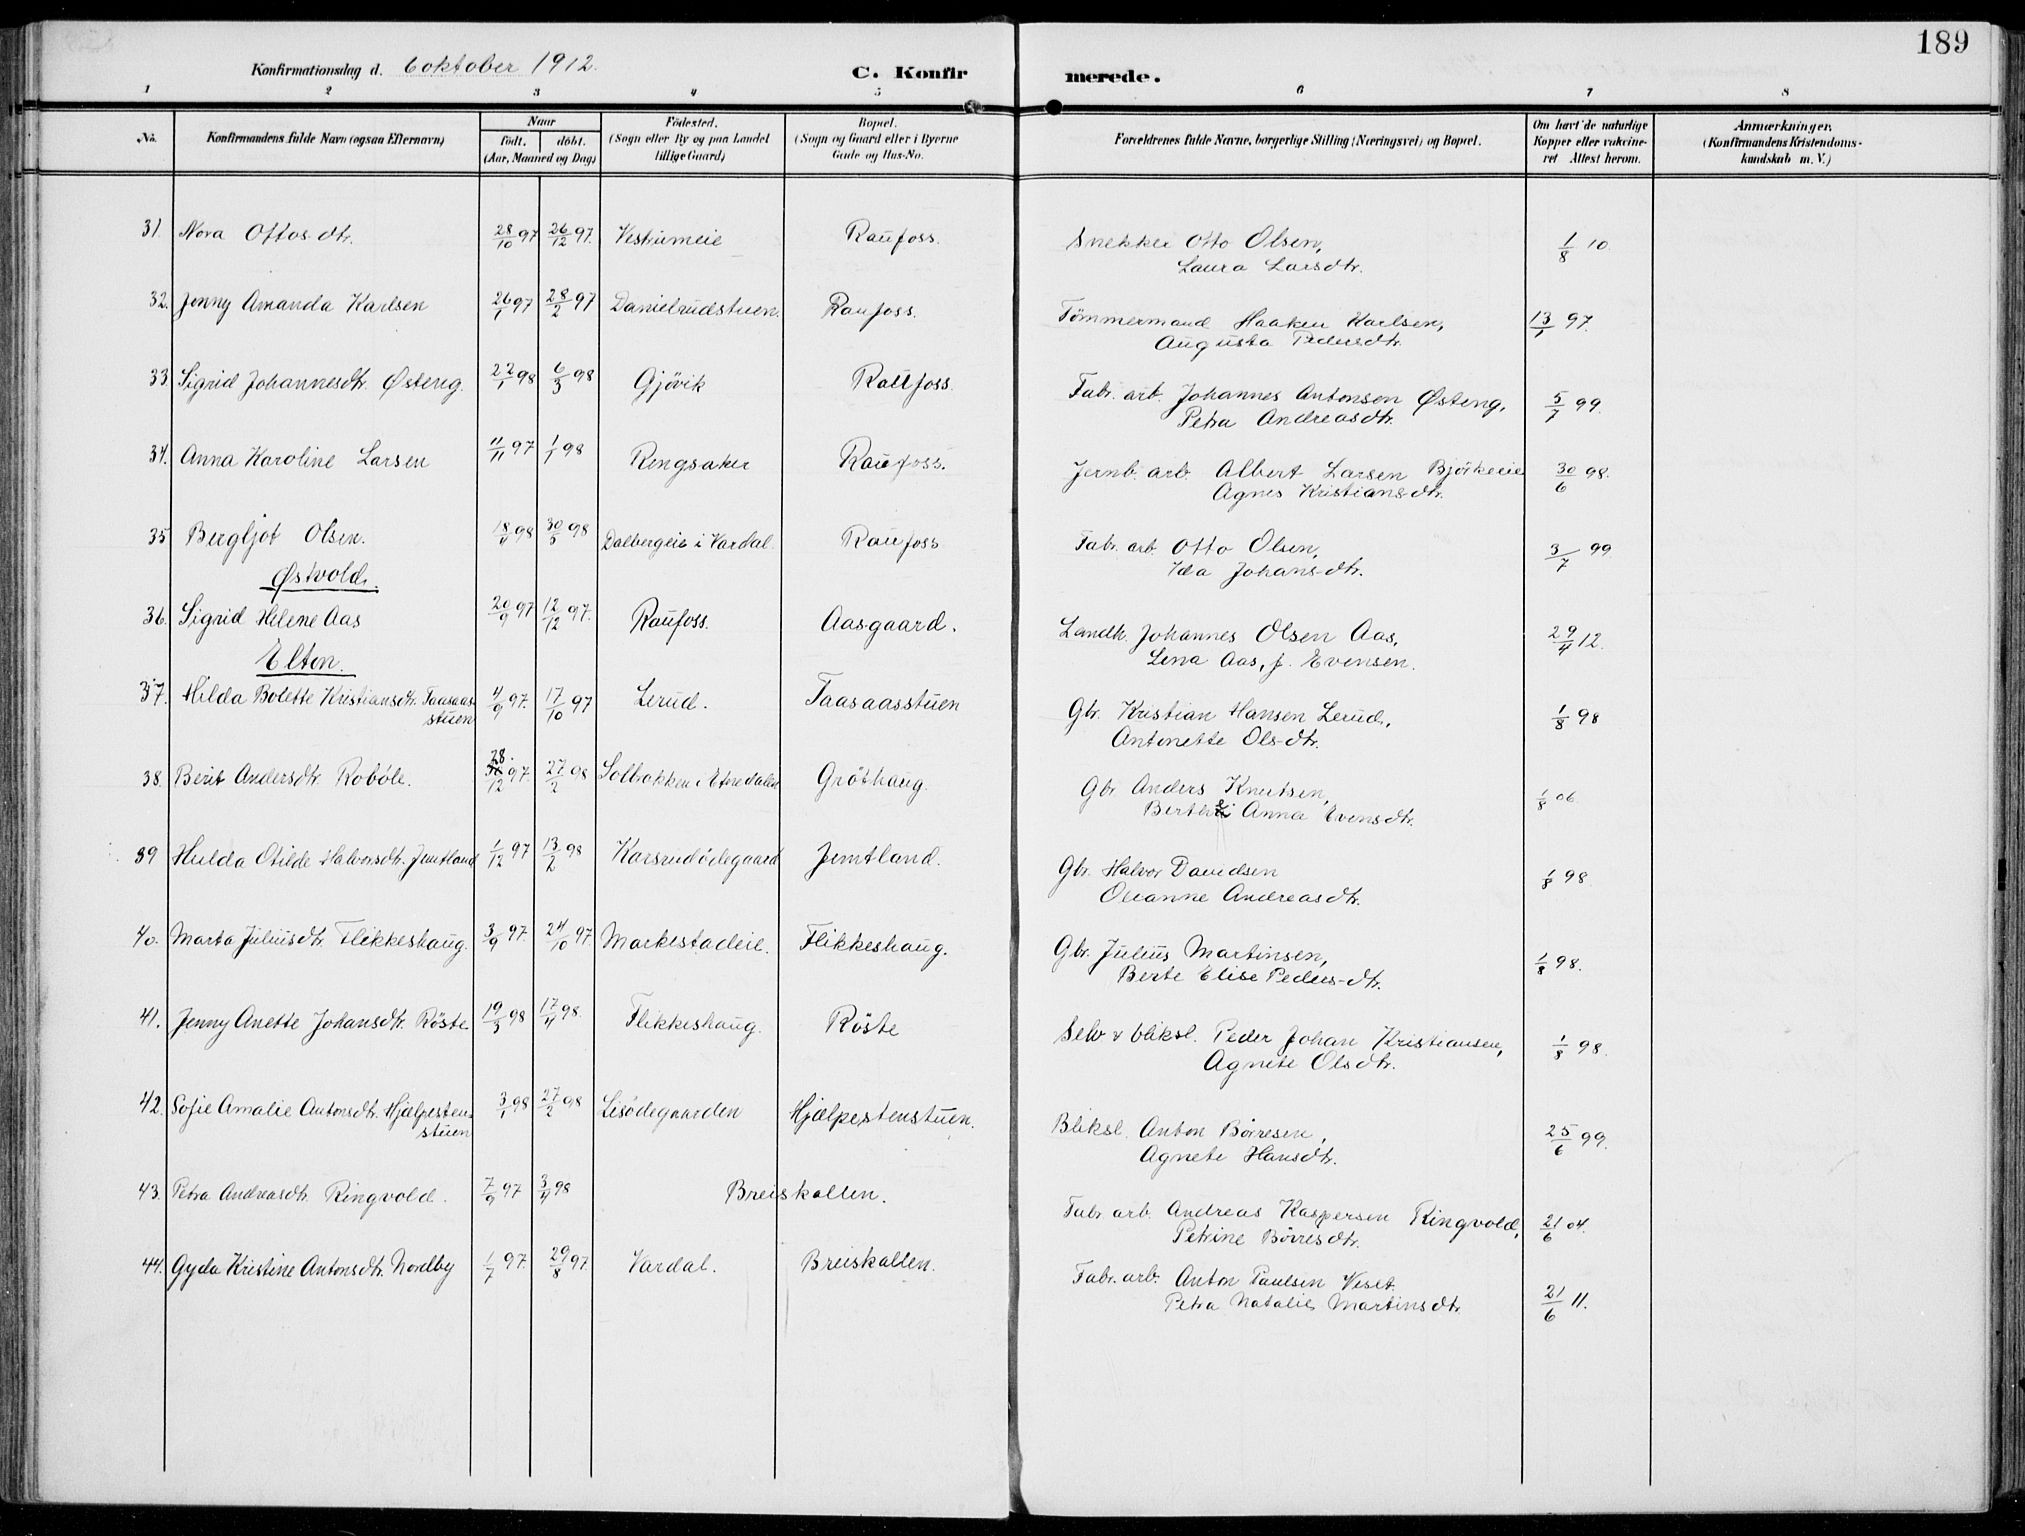 189
Konfirmationsdag d. 6 oktober 1912. C. Konfirmerede.
1 2 3 4 5 6 7 8
No. Konfirmandens fulde Navn (ogsaa Efternavn) Naar født. døbt. (Aar, Maaned og Dag) Födested. (Sogn eller By og paa Landet tillige Gaard) Bopæl. (Sogn og Gaard eller i Byerne Gade og Hus-No. Forældrenes fulde Navne, borgerlige Stilling (Næringsvei) og Bopæl. Om havt de naturlige Kopper eller vaccineret Attest herom. Anmærkninger. (Konfirmandens Kristendomskundskab m. V.)
31. Nora Ottos-dtr. 28/10 97 26/12 97. Vestrumeie Raufoss. Snekker Otto Olsen, 1/8 10
Laura Larsdtr.
32. Jenny Amanda Karlsen 26/1 97 28/2 97 Danielrudstuen. Raufoss. Tömmermand Haaken Karlsen, 13/1 97.
Augusta Pedersdtr.
33. Sigrid Johannesdtr. Østeng. 22/1 98 6/3 98 Gjövik Raufoss. Fabr. arb. Johannes Antonsen Østeng, 5/7 99.
Petra Andreasdtr.
34. Anna Karoline Larsen 11/11 97 1/1 98 Ringsaker Raufoss. Jernb. arb. Albert Larsen Björkeeie 30/6 98.
Agnes Kristiansdtr.
35 Bergljot Olsen. 18/4 98 30/5 98 Dalbergeie i Vardal. Raufoss Fabr. arb. Otto Olsen, 3/7 99
Østvold. Ida Johans-dtr.
36. Sigrid Helene Aas 20/9 97 12/12 97. Raufoss. Aasgaard. Landh. Johannes Olsen Aas, 29/4 12.
Elton. Lina Aas, f. Evensen.
37. Hilda Bolette Kristiansdtr. Taasaas- 4/9 97. 17/10 97 Lerud. Taasaasstuen Gbr. Kristian Hansen Lerud, 1/8 98
stuen Antonette Ols-dtr.
38. Berit Andersdtr. Robøle. 28/12 97. 27/2 98 Solbakken i Etnedalen Gröthaug. Gbr. Anders Knutsen, 1/8 06
Berthe Anna Evensdtr.
39 Hulda Otilde Halvorsdtr. Jemtland 1/12 97 13/2 98 Karsrudödegaard Jemtland. Gbr. Halvor Davidsen 1/8 98
Oleanne Andreasdtr.
40. Marta Juliusdtr. Flikkeshaug. 3/9 97. 24/10 97. Markestadeie. Flikkeshaug. Gbr. Julius Martinsen, 1/8 98.
Berte Elise Peders-dtr.
41. Jenny Anette Johansdtr. Röste 19/3 98 17/4 98. Flikkeshaug. Röste Selv v bliksl. Peder Johan Kristiansen, 1/8 98.
Agnete Olsdtr.
42. Sofie Amalie Antonsdtr. Hjælpesten- 3/1 98 27/2 98 Lisödegaarden Hjælpestenstuen. Bliksl. Anton Börresen, 25/6 99.
stuen Agnete Hansdtr.
43. Petra Andreasdtr. Ringvold. 7/9 97 3/4 98 Breiskallen. Fabr arb. Andreas Kaspersen Ringvold, 21/6 04.
Petrine Börresdtr.
44. Gyda Kristine Antonsdtr. Nordby 1/7 97. 29/8 97. Vardal. Breiskallen. Fabr. arb. Anton Paulsen Veset. 21/6 11.
Petra Natalie Martinsdtr.